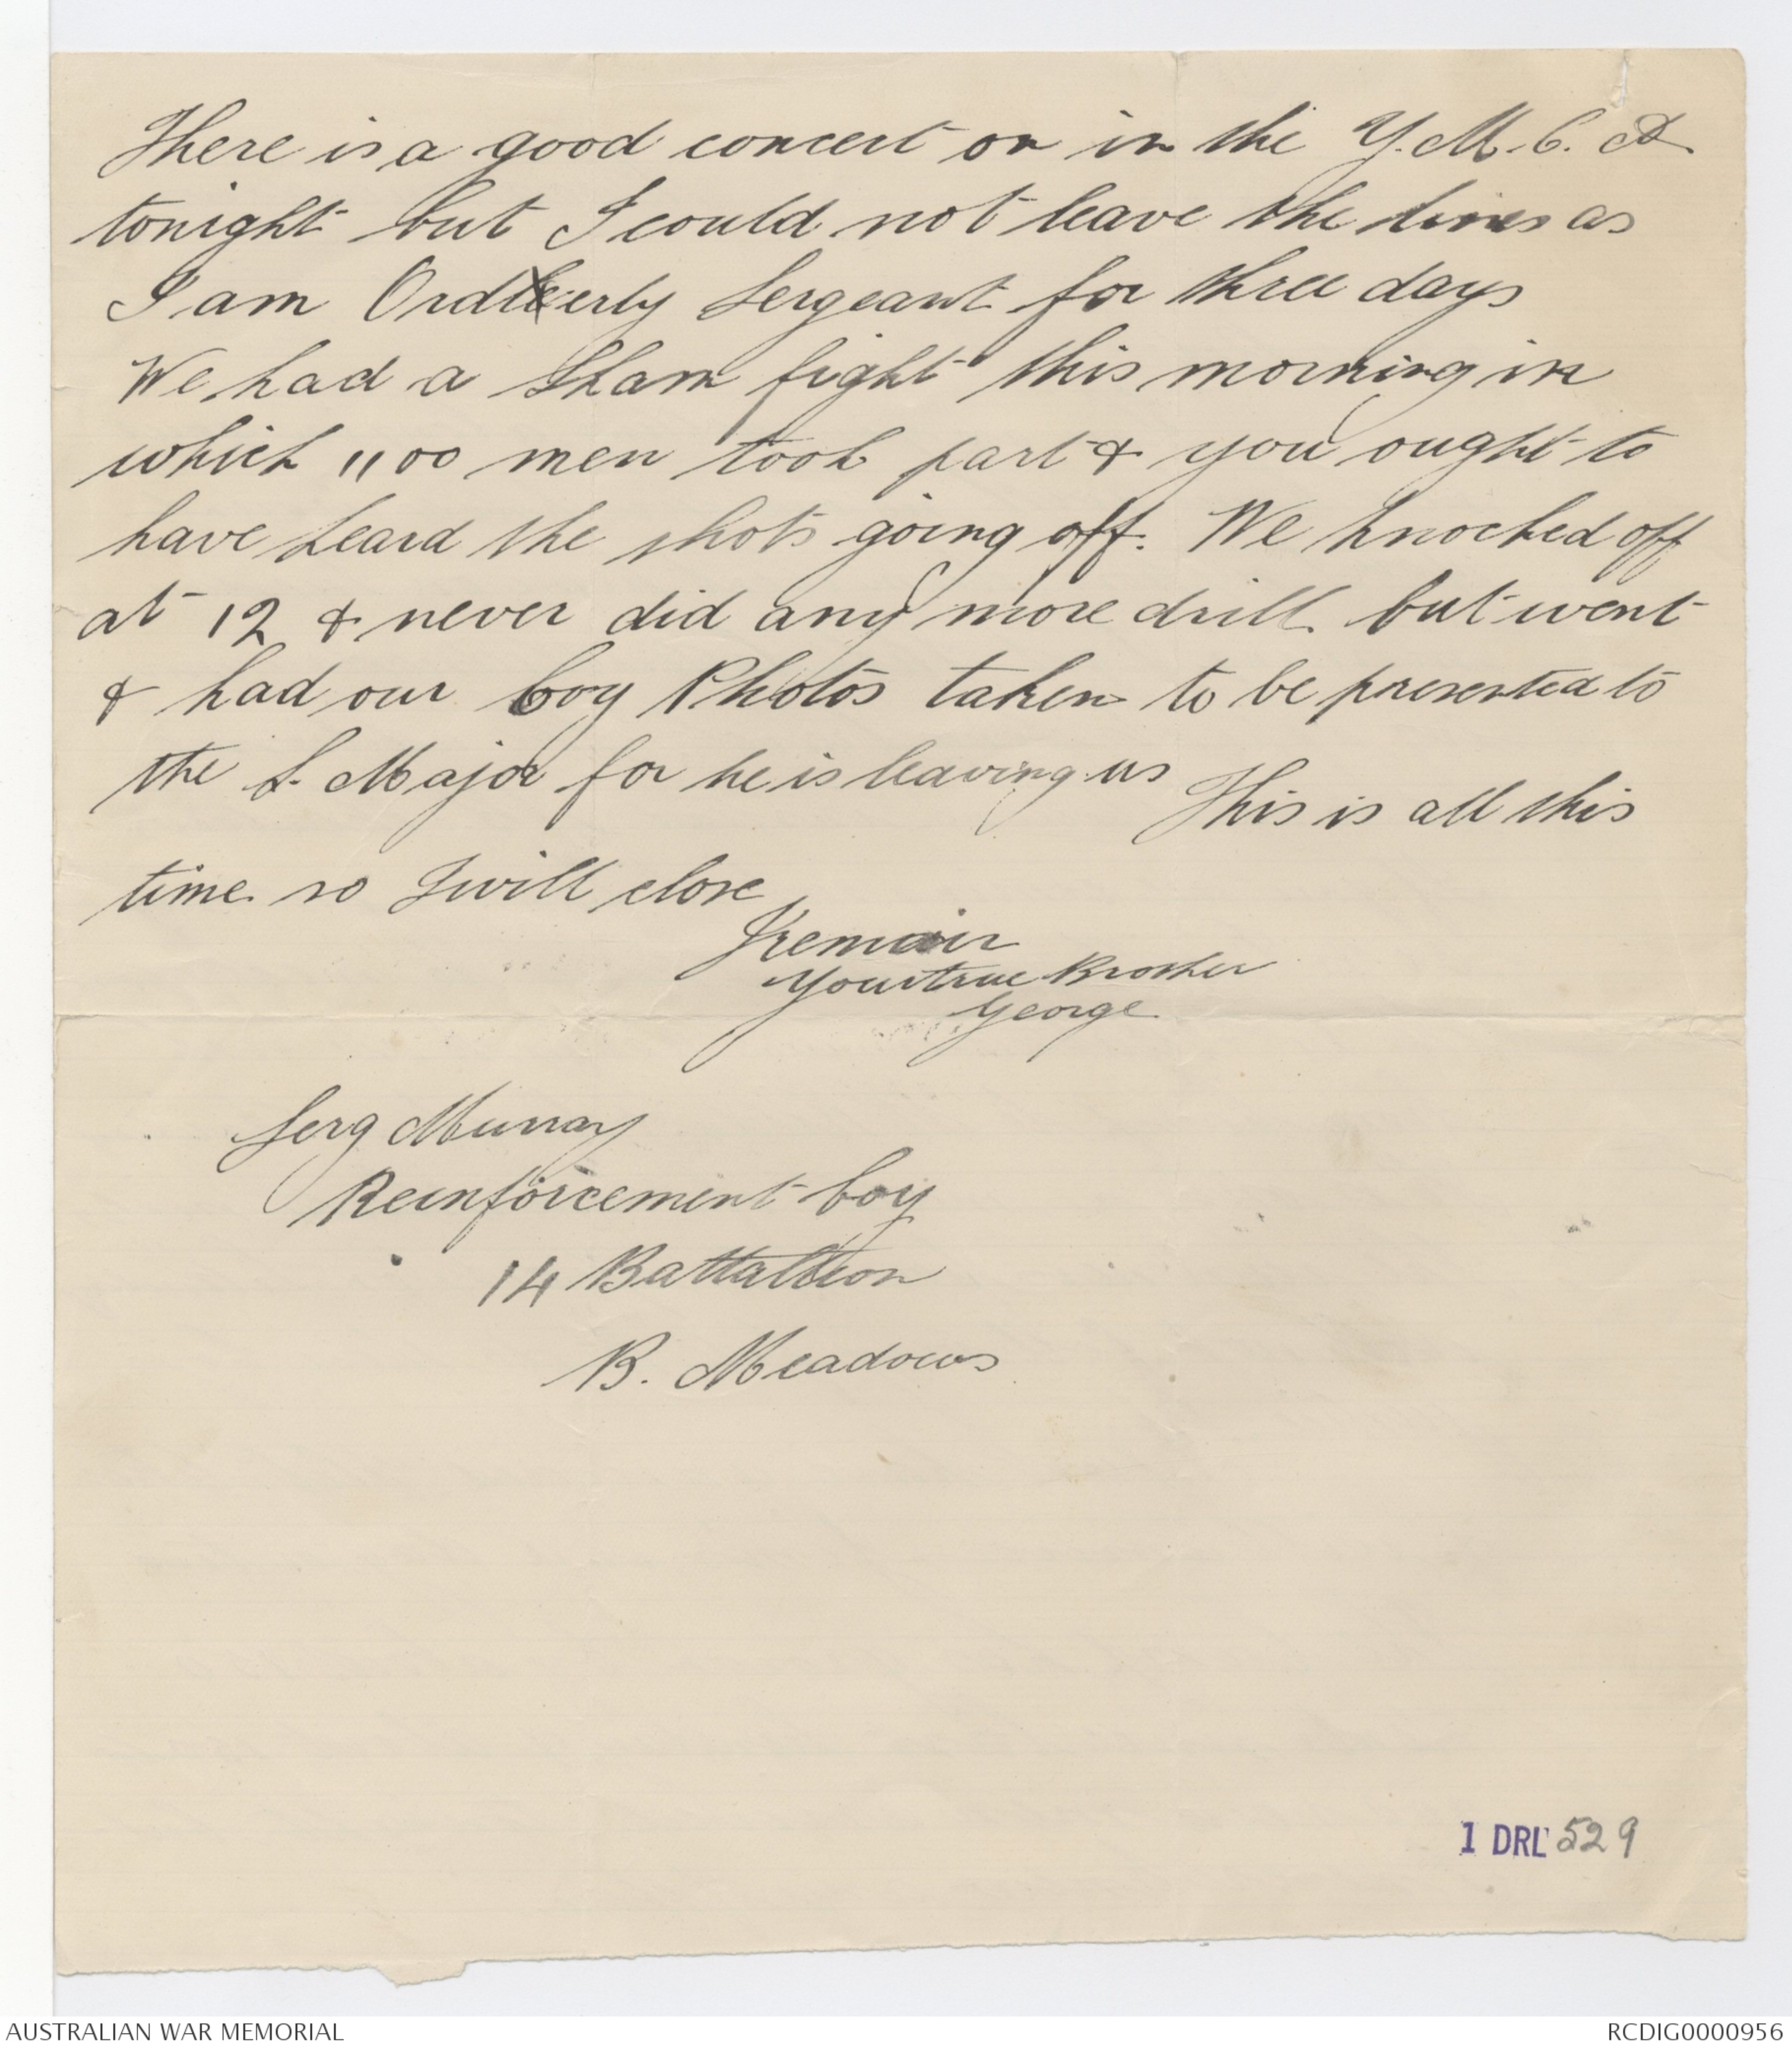 There is a good concert on in the Y.M.C.A
tonight but I could not leave the lines as
I am Orderly Sergeant for three days
We had a Sham fight this morning in
which 1100 men took part & you ought to
have heard the shots going off. We knocked off
at 12 & never did any more drill but went
& had our Coy Photos taken to be presented to
the S. Major for he is leaving us This is all this
time so I will close
I remain
Your true Brother
George
Serg Murray
Reinforcement Coy
14 Battallion
B. Meadows
1 DRL 529
AUSTRALIAN WAR MEMORIAL
RCDIG0000956